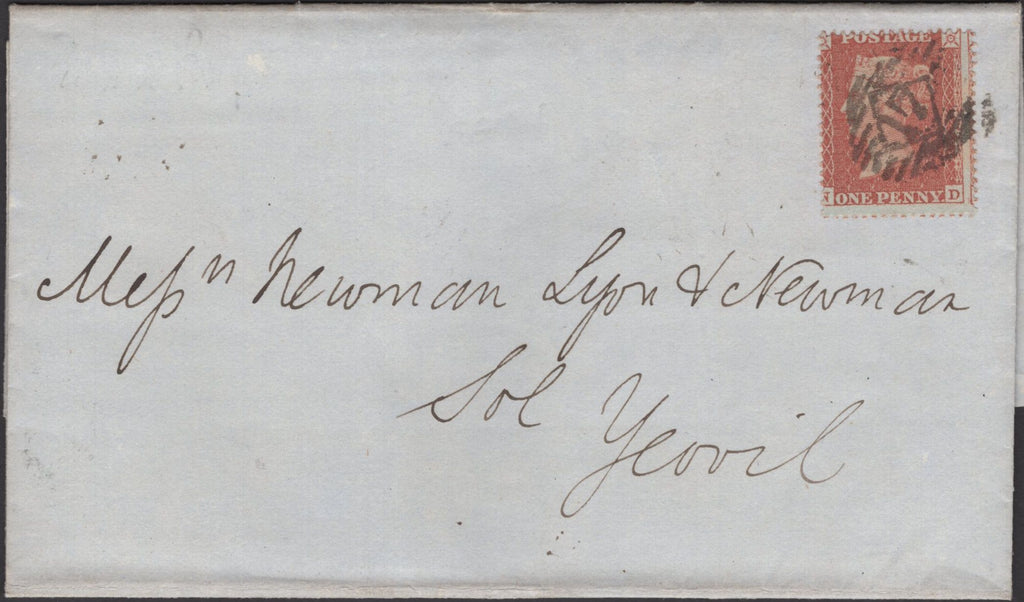 POSTAGE
77
N ONE PENNY D
Messrs Newman Lyon & Newman
Sol
Yeovil